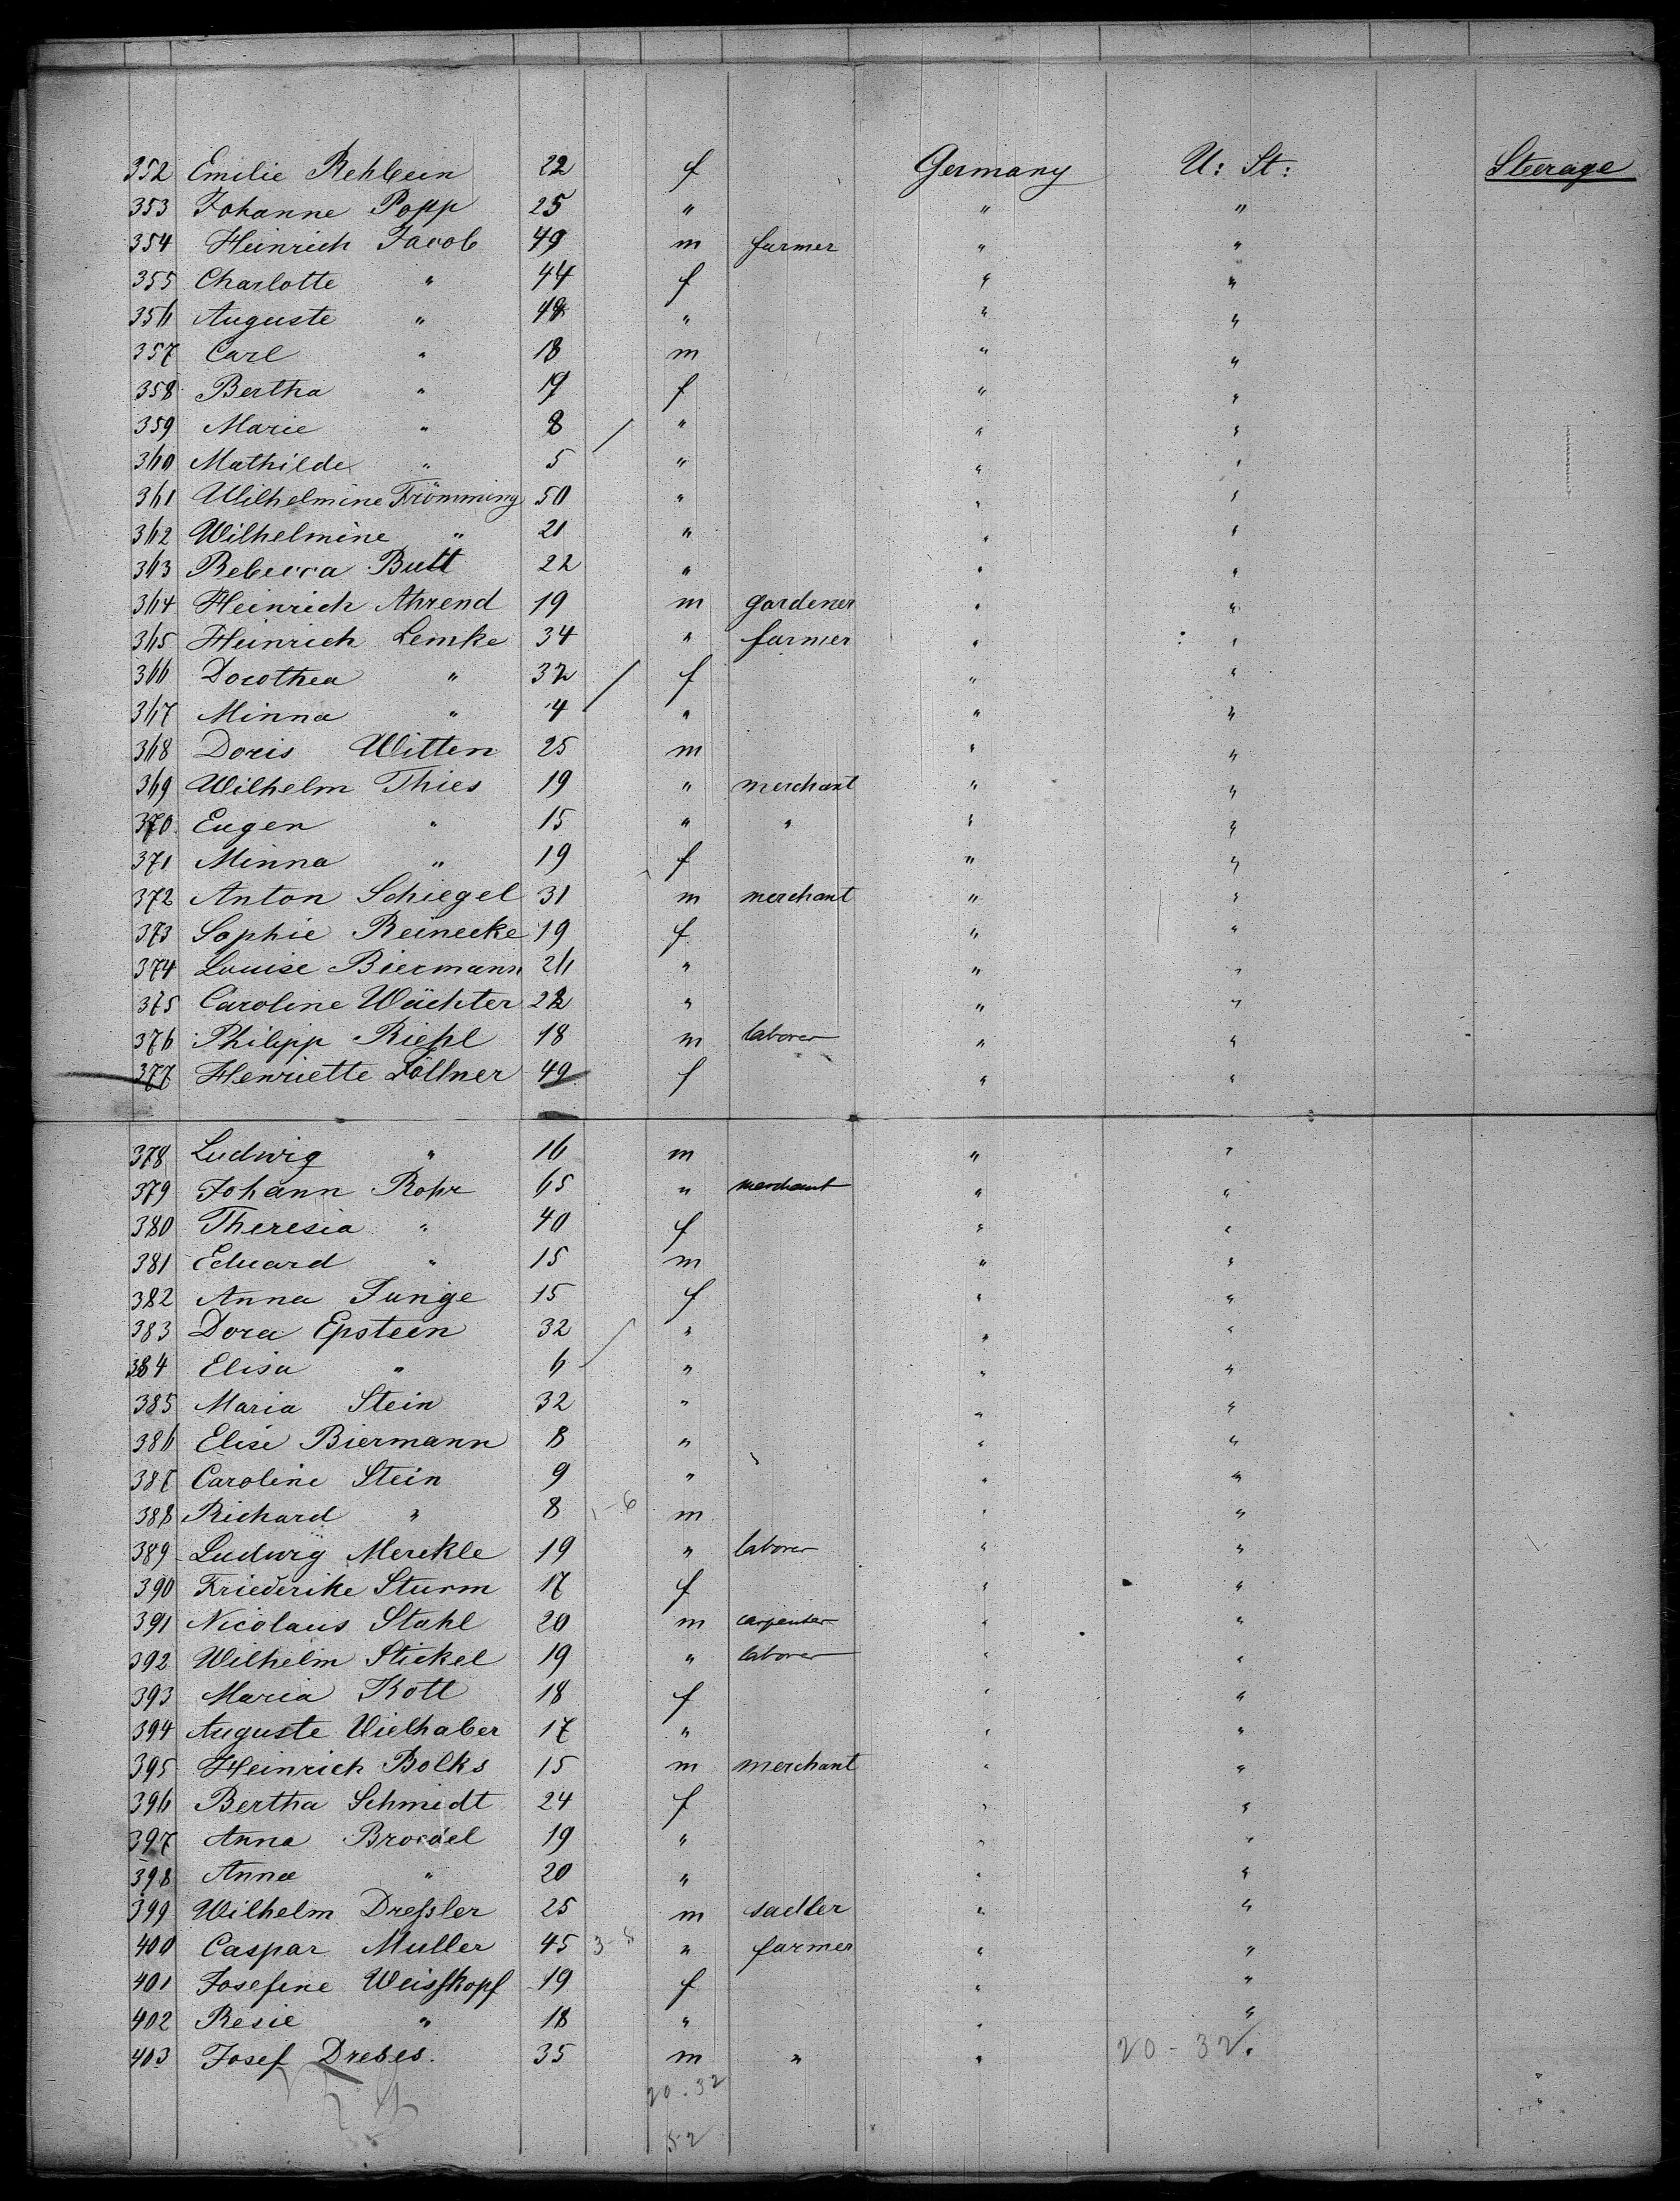 352 Emilie Rehbein 22 f Germany U: St: Steerage
353 Johanne Popp 25 " " "
354 Heinrich Jacob 49 m farmer " "
355 Charlotte " 44 f " "
356 Auguste " " " "
357 Carl " 18 m " "
358 Bertha " 17 f " "
359 Marie " 8 " " "
360 Mathilde " 5 " " "
361 Wilhelmine Frömming 50 " " "
362 Wilhelmine " 21 " " "
363 Rebecca Butt 22 " " "
364 Heinrich Ahrend 19 m gardener " "
365 Heinrich Lemke 34 " farmer " "
366 Dorothea " 32 f " "
367 Minna " 4 " " "
368 Doris Witten 25 m " "
369 Wilhelm Thies 19 " merchant " "
370 Eugen " 15 " " " "
371 Minna " 19 f " "
372 Anton Schiegel 31 m merchant " "
373 Sophie Reinecke 19 f " "
374 Louise Biermann 26 " " "
375 Caroline Wächter 22 " " "
376 Philipp Riehl 18 m laborer " "
377 Henriette Zöllner 49 f " "
378 Ludwig " 16 m " "
379 Johann Rohr 65 " merchant " "
380 Theresia " 40 f " "
381 Eduard " 15 m " "
382 Anna Junge 15 f " "
383 Dora Epstein 32 " " "
384 Elisa " 6 " " "
385 Maria Stein 32 " " "
386 Elise Biermann 8 " " "
387 Caroline Stein 9 " " "
388 Richard " 8 1-6 m " "
389 Ludwig Merckle 19 " laborer " "
390 Friederike Sturm 17 f " "
391 Nicolaus Stahl 20 m carpenter " "
392 Wilhelm Stickel 19 " laborer " "
393 Maria Kott 18 f " "
394 Auguste Vielhaber 17 " " "
395 Heinrich Bolks 15 m merchant " "
396 Bertha Schmidt 24 f " "
397 Anna Broedel 19 " " "
398 Anna " 20 " " "
399 Wilhelm Dreßler 25 m sadler " "
400 Caspar Muller 45 3-5 " farmer " "
401 Josefine Weisskopf 19 f " "
402 Resie " 18 " " "
403 Josef Drebes. 35 m " " 20-32 "
20.32
52